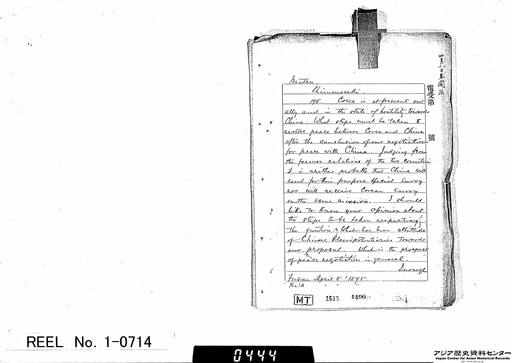 Mutsu,
Shimonoseki.
198. Corea is at present our
ally and in the state of hostility towards
China. What steps must be taken to
restore peace between Corea and China
after the conclusion of our negotiation
for peace with China. Judging from
the former relations of the two countries
it is neither probable that China will
send for this purpose special envoy
nor will receive Corean Envoy
on the same mission. I should
like to know your opinion about
the steps to be taken respecting
the question & what has been attitude
of Chinese Plenipotentiaries towards
our proposal. What is the progress
of peace negotiation in general.
Inouye
Fusan April 8 1895
Rec'd
電受第 號
MT 1615 1496
REEL No. 1-0714
0444
アジア歴史資料センター
Japan Center for Asian Historical Records